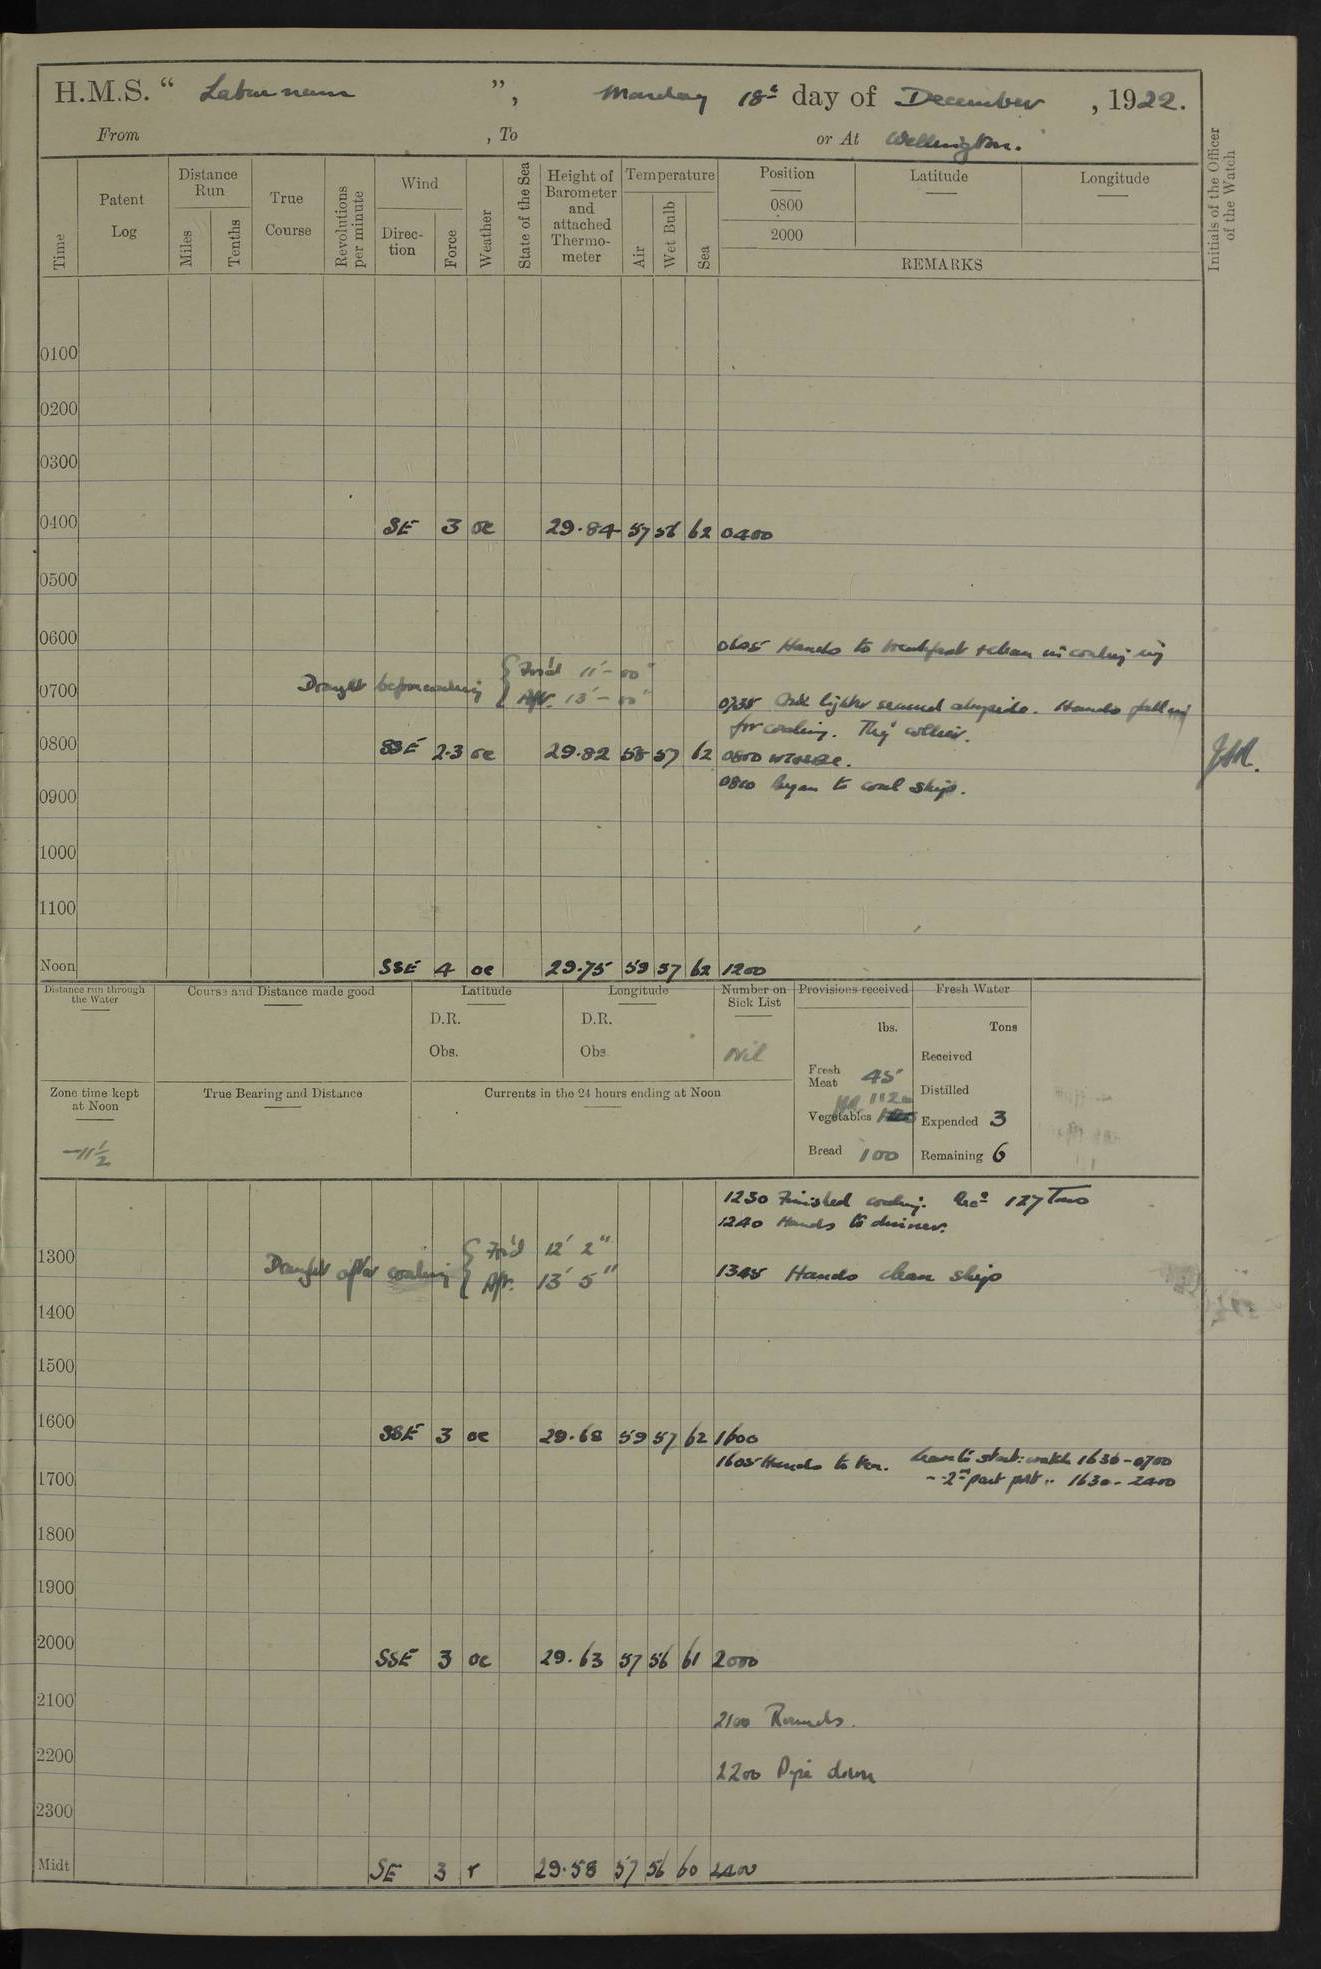 H.M.S. “ Laburnum ”, Monday 18th day of December, 1922.
From , To or At Wellington.
Time
Patent Log
Distance Run
Miles
Tenths
True Course
Revolutions per minute
Wind
Direction
Force
Weather
State of the Sea
Height of Barometer and attached Thermometer
Temperature
Air
Wet Bulb
Sea
Position
0800
2000
Latitude
Longitude
REMARKS
Initials of the Officer of the Watch
0100
0200
0300
0400 SE 3 oc 29.84 57 56 62 0400
0500
0600
0605 Hands to breakfast & clean in coaling rig
Draught before coaling { For'd 11'–00"
0700
Aft. 13'–00"
0735 lighter secured alongside. Hands fall in
for coaling. collier.
0800 SSE 2.3 oc 29.82 58 57 62 0800
0810 Began to coal ship.
0900
1000
1100
Noon SSE 4 oc 29.75 59 57 62 1200
Distance run through the Water
Course and Distance made good
Latitude
D.R.
Obs.
Longitude
D.R.
Obs
Number on Sick List
Nil
Provisions received
lbs.
Fresh Meat 45
Vegetables 112
Bread 100
Fresh Water
Tons
Received
Distilled
Expended 3
Remaining 6
Zone time kept at Noon
-11½
True Bearing and Distance
Currents in the 24 hours ending at Noon
1230 Finished coaling. Recd 127 Tons
1240 Hands to dinner.
1300
Draught after coaling { For'd 12' 2"
Aft. 13' 5"
1345 Hands clean ship
1400
1500
1600 SSE 3 oc 29.68 59 57 62 1600
1605 Hands to tea. Leave to starb: watch 1630-0700
" " 2nd part port " 1630-2400
1700
1800
1900
2000 SSE 3 oc 29.63 57 56 61 2000
2100
2100 Rounds.
2200
2200 Pipe down
2300
Midt SE 3 r 29.58 57 56 60 2400